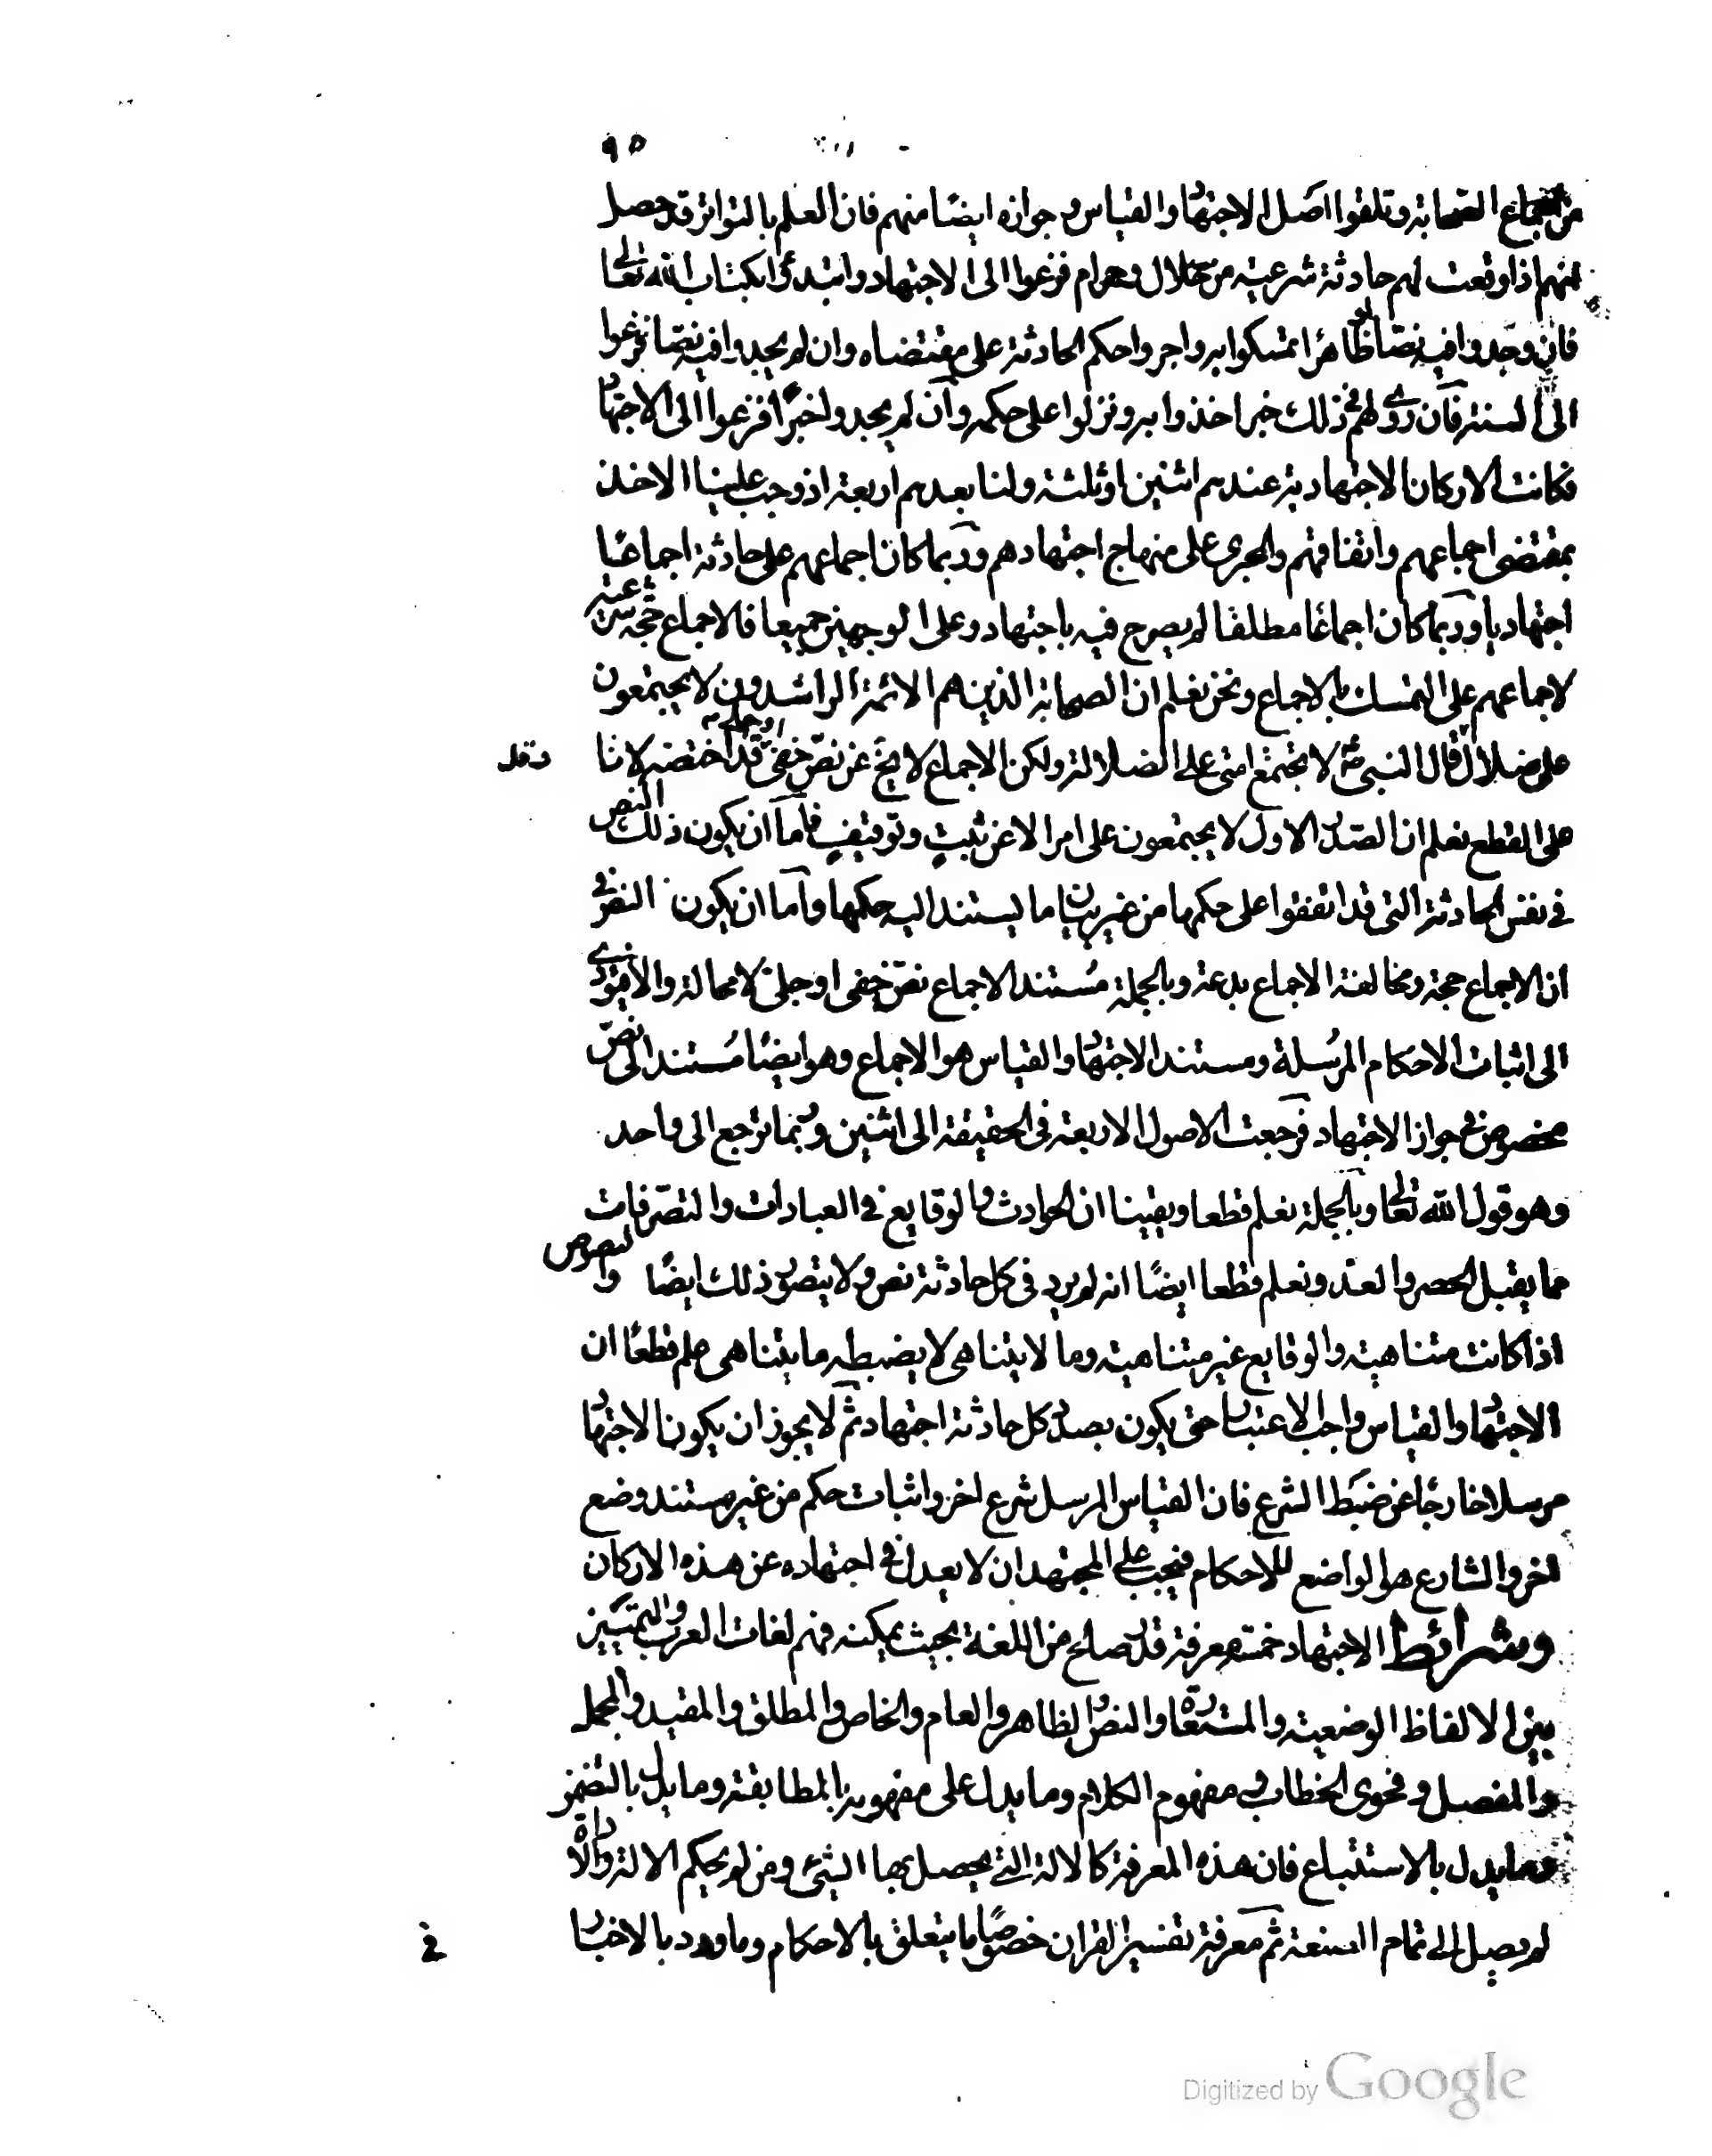 ٩٥
من اجماع الصحابة وتلقوا اصل الاجتهاد والقياس وجوازه ايضا منهم فان العلم بالتواتر قد حصل
انهم اذا وقعت لهم حادثة شرعية من حلال وحرام فزعوا الى الاجتهاد وابتدؤا بكتاب الله تعالى
فان وجدوا فيه نصا او ظاهرا تمسكوا به واجروا حكم الحادثة على مقتضاه وان لم يجدوا فيه نصا فزعوا
الى السنة فان روى لهم في ذلك خبر اخذوا به ونزلوا على حكمه وان لم يجدوا خبرا فزعوا الى الاجتهاد
فكانت الاركان الاجتهادية عندهم اثنين او ثلثة ولنا بعدهم اربعة اذ وجب علينا الاخذ
بمقتضى اجماعهم واتفاقهم والجرى على منهاج اجتهادهم وربما كان اجماعهم على حادثة اجماعا
اجتهاديا وربما كان اجماعا مطلقا لم يصرح فيه باجتهاد وعلى الوجهين جميعا فالاجماع حجة شرعية
لاجماعهم على التمسك بالاجماع ونحن نعلم ان الصحابة الذين هم الائمة الراشدون لا يجتمعون
على ضلال وقد قال النبى صم لا تجتمع امتى على الضلالة ولكن الاجماع لا يخ عن نص خفى او جلى قد اختصه لانا
على القطع نعلم ان الصدر الاول لا يجتمعون على امر الا عن ثبت وتوقيف فاما ان يكون ذلك النص
في نفس الحادثة التى قد اتفقوا على حكمها من غير بيان ما يستند اليه حكمها واما ان يكون النص فى
ان الاجماع حجة ومخالفة الاجماع بدعة وبالجملة مستند الاجماع نص خفى او جلى لا محالة والا فيؤدى
الى اثبات الاحكام المرسلة ومستند الاجتهاد والقياس هو الاجماع وهو ايضا مستند الى نص
مخصوص في جواز الاجتهاد فرجعت الاصول الاربعة فى الحقيقة الى اثنين وربما ترجع الى واحد
وهو قول الله تعالى وبالجملة نعلم قطعا ويقينا ان الحوادث والوقايع في العبادات والتصرفات
مما يقبل الحصر والعد ونعلم قطعا ايضا انه لم يرد فى كل حادثة نص ولا يتصور ذلك ايضا والنصوص
اذا كانت متناهية والوقايع غير متناهية وما لا يتناهى لا يضبطه ما يتناهى علم قطعا ان
الاجتهاد والقياس واجب الاعتبار حتى يكون بصدد كل حادثة اجتهاد ثم لا يجوز ان يكون الاجتهاد
مرسلا خارجا عن ضبط الشرع فان القياس المرسل شرع اخر واثبات حكم من غير مستند وضع
اخر والشارع هو الواضع للاحكام فيجب على المجتهد ان لا يعدل في اجتهاده عن هذه الاركان
وشرائط الاجتهاد خمسة معرفة قدر صالح من اللغة بحيث يمكنه فهم لغات العرب والتمييز
بين الالفاظ الوضعية والمستعارة والنص والظاهر والعام والخاص والمطلق والمقيد والمجمل
والمفصل وفحوى الخطاب ومفهوم الكلام وما يدل على مفهومه بالمطابقة وما يدل بالتضمن
وما يدل بالاستتباع فان هذه المعرفة كالالة التي يحصل بها الشئ ومن لم يحكم الالة والاداة
لم يصل الى تمام الصنعة ثم معرفة تفسير القران خصوصا ما يتعلق بالاحكام وما ورد بالاخبار
في
Digitized by Google